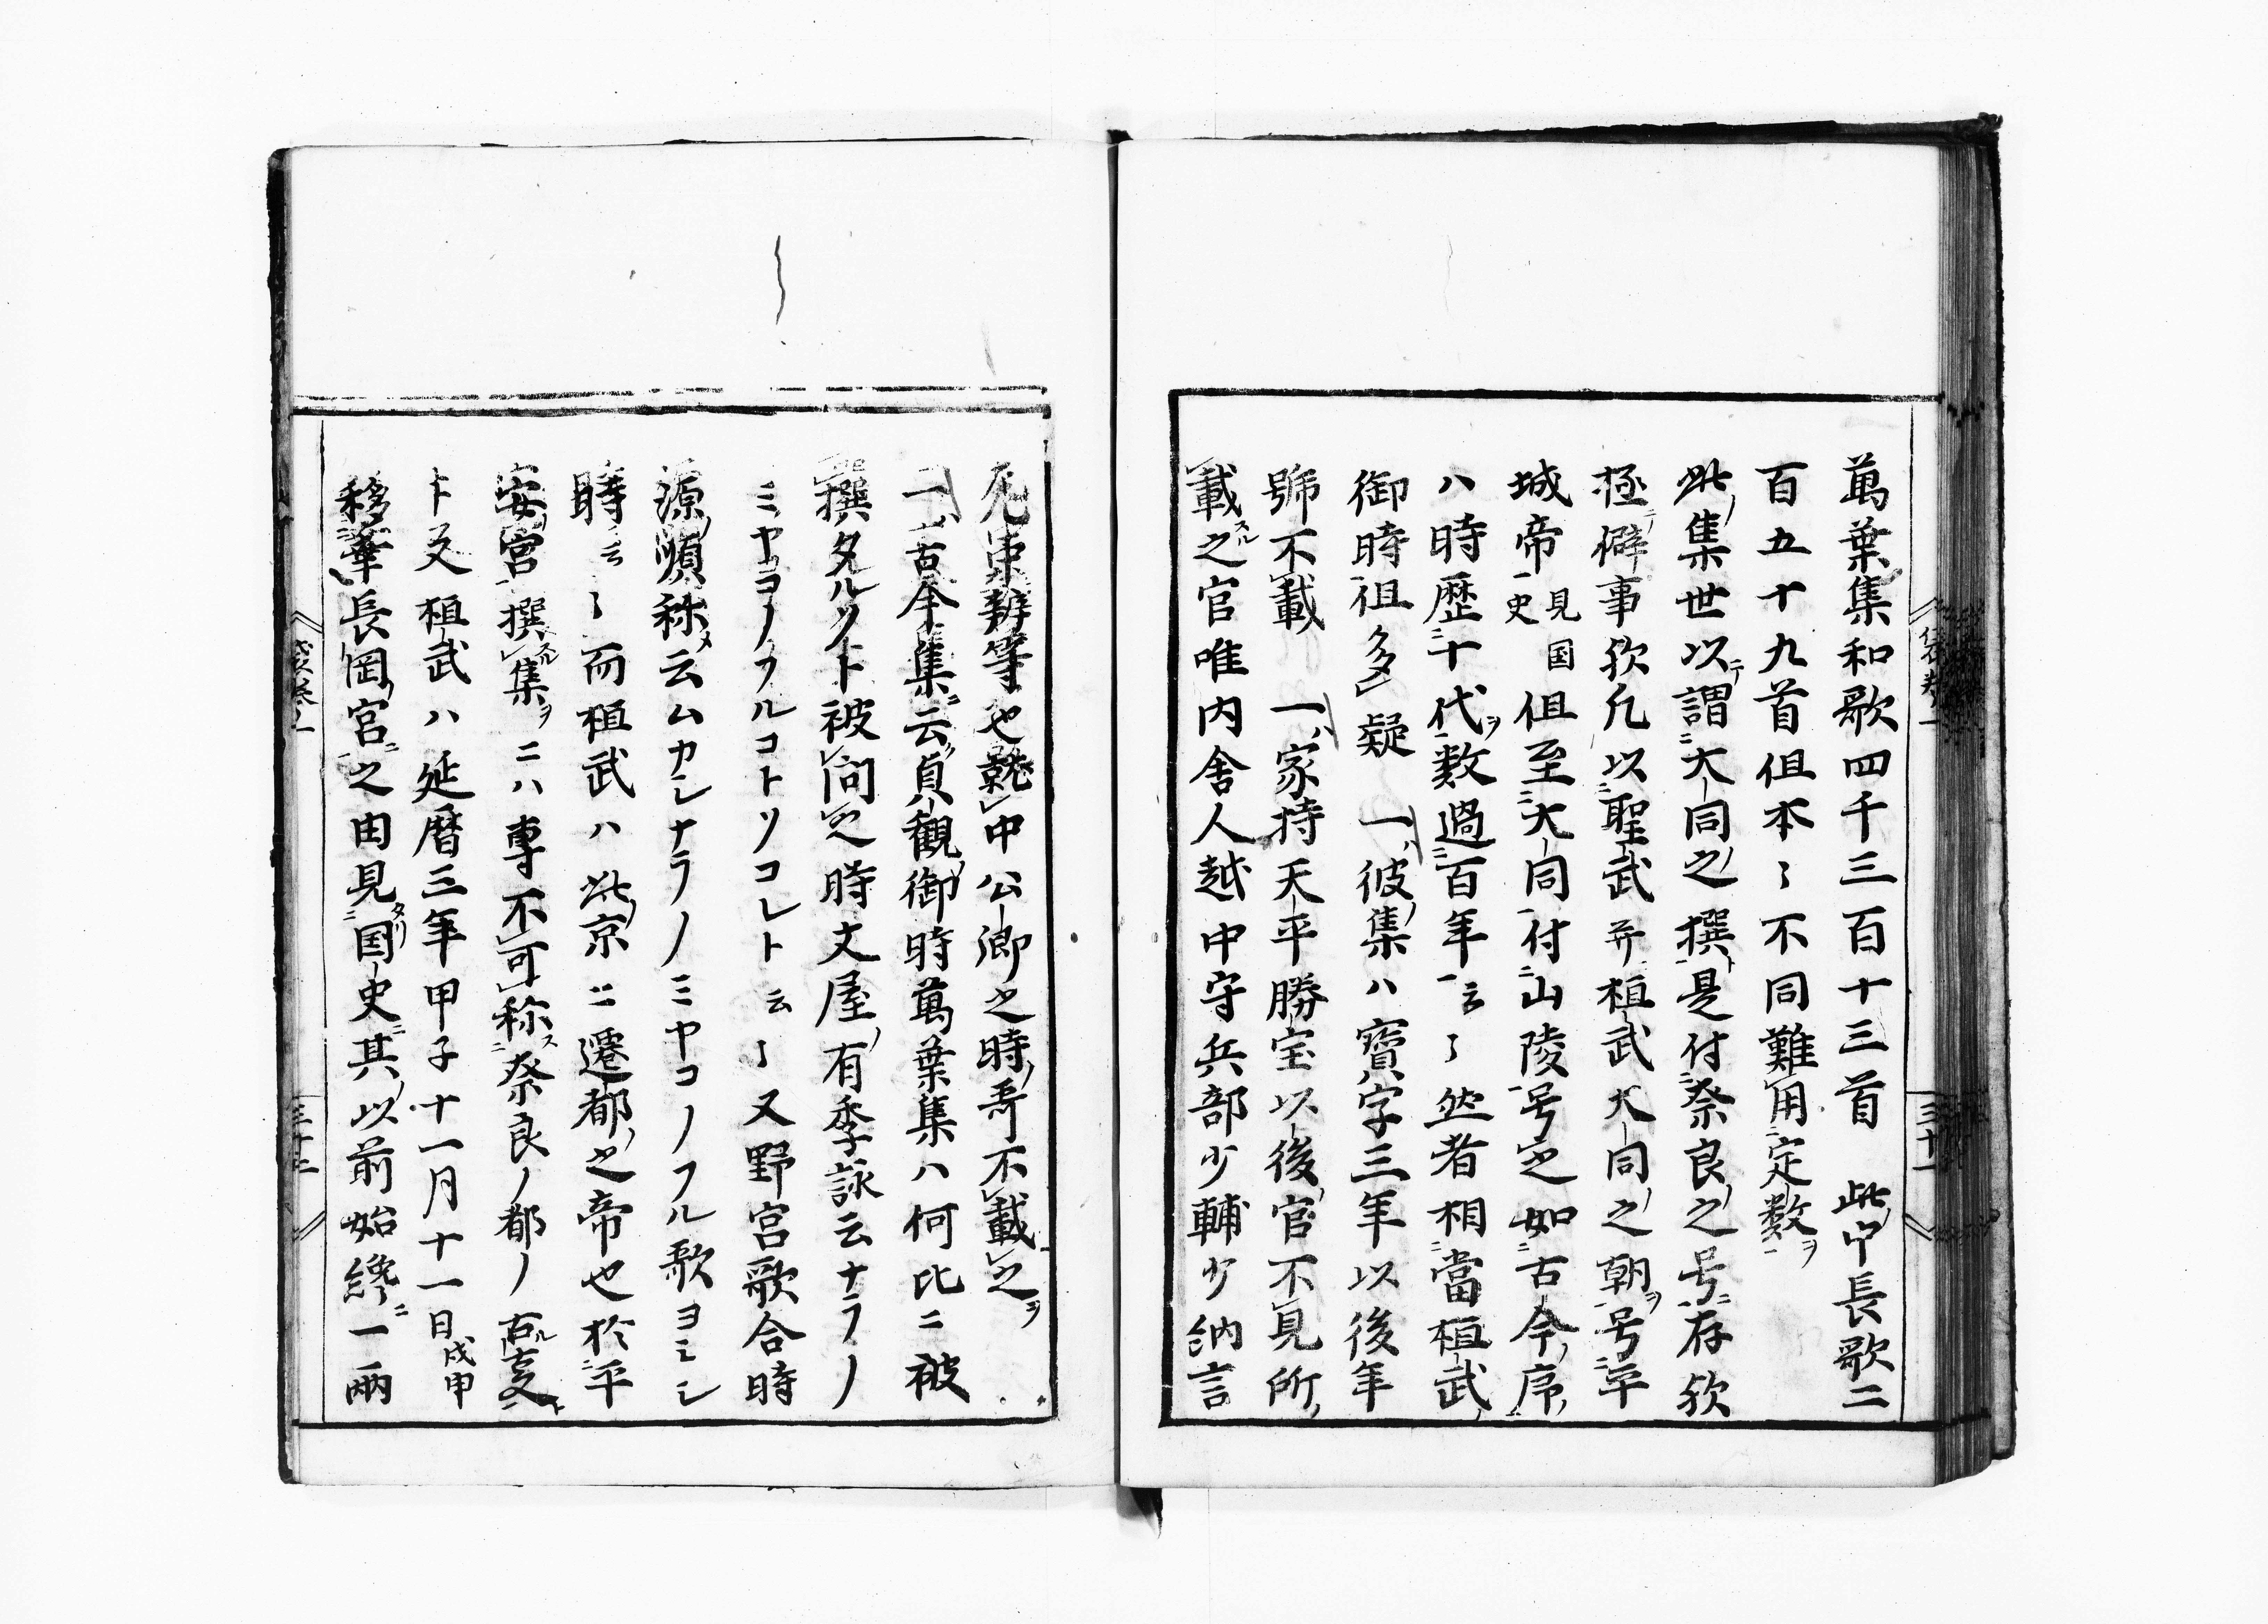 萬葉集和歌四千三百十三首　此中長歌二
百五十九首但本〻不同難用定数ヲ
此集世以謂大同之撰是付奈良之号存歟
極僻事歟凡以聖武并桓武大同之朝号平
城帝見国史但至大同付山陵号定如古今序
ハ時歴十代数過百年云〻然者相當桓武
御時徂多疑　一彼集ハ寶字三年以後年
號不載　一家持天平勝宝以後官不見所
載之官唯内舎人越中守兵部少輔少納言
左中辨等也就中公卿之時哥不載之
一古今集云貞観御時萬葉集ハ何比ニ被
撰タルソト被問之時文屋有季詠云ナラノ
ミヤコノフルコトソコレト云〻又野宮歌合時
源順称云ムカシナラノミヤコノフル歌ヨミシ
時云〻而桓武ハ此京ニ遷都之帝也於平
安宮撰集ヲニハ専不可称奈良ノ都ノ古支ト
ト又桓武ハ延暦三年甲子十一月十一日戊申
移幸長岡宮之由見国史其以前始終一両